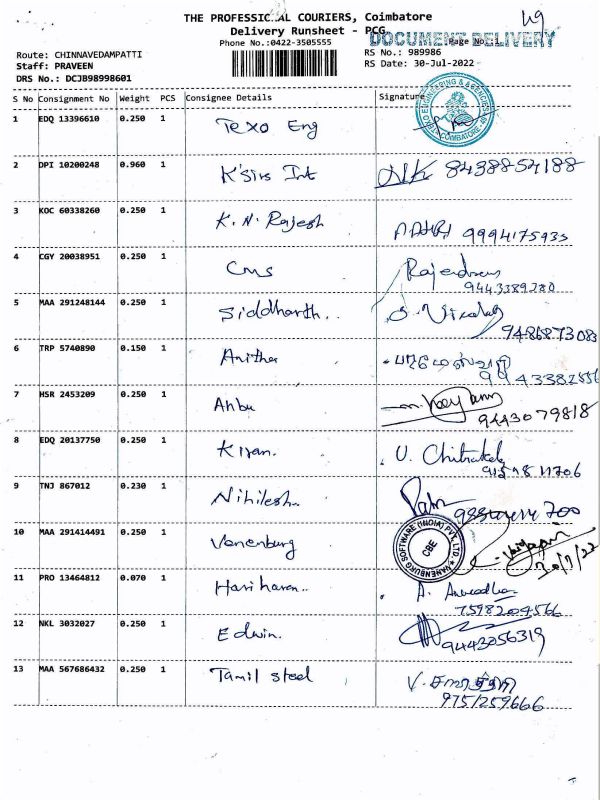 THE PROFESSIC..AL COURIERS, Coimbatore
Delivery Runsheet - PCG
Phone No.:0422-3505555
DOCUMENT DELIVERY
Page No.:1
49
Route: CHINNAVEDAMPATTI
RS No.: 989986
Staff: PRAVEEN
RS Date: 30-Jul-2022
DRS No.: DCJB98998601
S No Consignment No Weight PCS Consignee Details Signature
1 EDQ 13396610 0.250 1 Texo Eng
ENGINEERING & AGENCIES COIMBATORE
2 DPI 10200248 0.960 1 K'Sirs Int 8438854188
3 KOC 60338260 0.250 1 K.N. Rajesh 9994175935
4 CGY 20038951 0.250 1 Cms Rajendran
9443389280
5 MAA 291248144 0.250 1 Siddharth..
9486873083
6 TRP 5740890 0.150 1 Anitha
9943382556
7 HSR 2453209 0.250 1 Anbu
9443079818
8 EDQ 20137750 0.250 1 Kiran. U. Chitrakala
9 TNJ 867012 0.230 1 Nihilesh.
10 MAA 291414491 0.250 1 Vanenburg
VANENBURG SOFTWARE (INDIA) PVT. LTD. CBE
30/7/22
11 PRO 13464812 0.070 1 Hariharan.. A. Anuradha
7598209566
12 NKL 3032027 0.250 1 Edwin.
9443056319
13 MAA 567686432 0.250 1 Tamil steel
9751259666